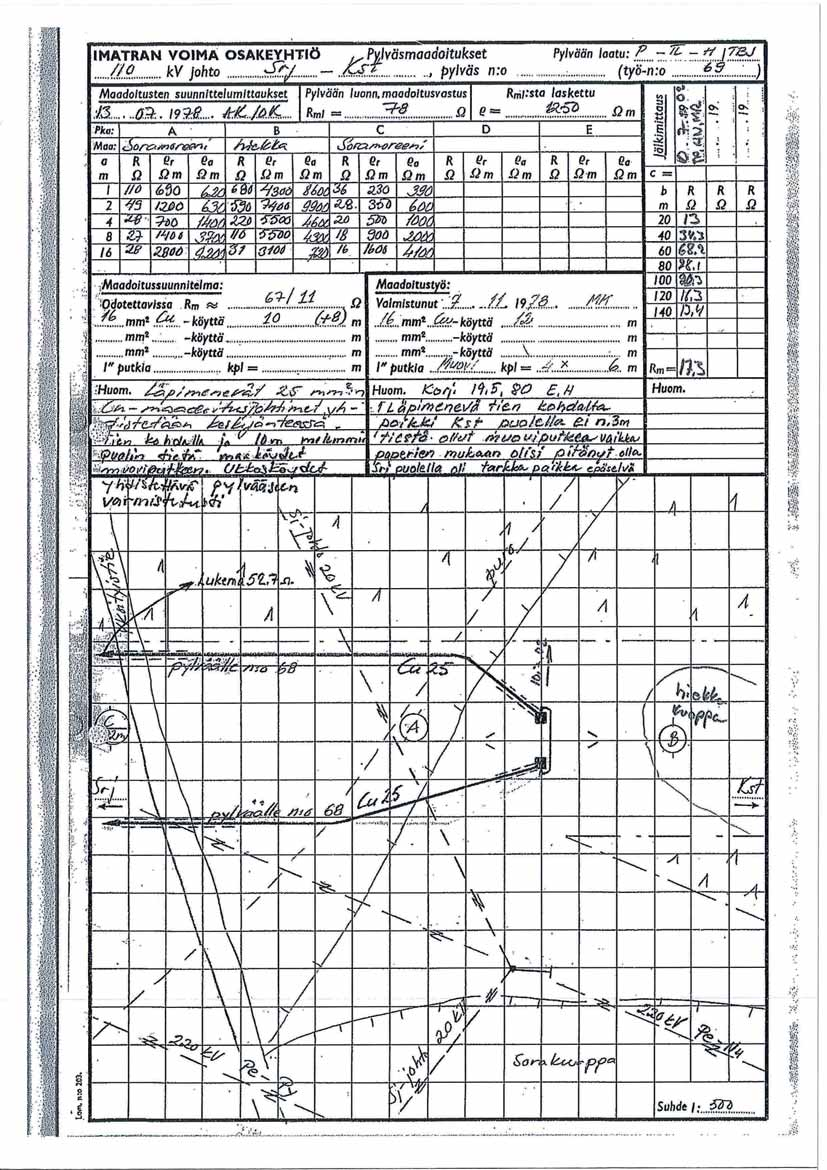 IMATRAN VOIMA OSAKEYHTIÖ Pylväsmaadoitukset Pylvään laatu: P - TL - H / TBJ
110 kV johto Srj — Kst, pylväs n:o (työ-n:o 69)
Maadoitusten suunnittelumittaukset Pylvään luonn. maadoitusvastus Rml:sta laskettu
13. 07. 1978 Rml = 78 Ω ϱ = 1250 Ωm
Jälkimittaus
19. 19.
Pka: A B C D E
Maa: Soramoreeni hiekka Soramoreeni
a R ϱr ϱa R ϱr ϱa R ϱr ϱa R ϱr ϱa R ϱr ϱa c =
m Ω Ωm Ωm Ω Ωm Ωm Ω Ωm Ωm Ω Ωm Ωm Ω Ωm Ωm
b R R R
m Ω Ω Ω
1 110 690 620 680 4300 8600 36 230 390
2 49 1200 630 590 7400 9900 28 350 600
4 28 700 1400 220 5500 4600 20 500 1000
8 27 1400 110 5500 4300 18 900 2000
16 28 2800 9200 31 3100 720 16 1600 4100
20 13
40
60 68.2
80
100
120 16.3
140 15,4
Rm = 17,3
Maadoitussuunnitelma:
Odotettavissa Rm ≈ 67/11 Ω
16 mm² Cu -köyttä 10 (+8) m
mm² -köyttä m
mm² -köyttä m
1" putkia kpl = m
Maadoitustyö:
Valmistunut 7 11. 1978 MK
16 mm² Cu -köyttä 12 m
mm² -köyttä m
mm² -köyttä m
1" putkia Muovi kpl = 4 x 6 m
Huom. Läpimenevät 25 mm²:n
Cu-maadoitusjohtimet yh-
distetään keskijänteessä.
Tien kohdalla ja 10m molemmin
puolin tietä maaköydet
muoviputkeen. Ukkosköydet
yhdistettävä pylvääseen
varmistetusti
Huom. Korj. 19.5.80 E.H
1 Läpimenevä tien kohdalta
poikki Kst puolella ei n. 3m
tiestä ollut muoviputkea vaikka
paperien mukaan olisi pitänyt olla
Srj puolella oli tarkka paikka epäselvä
Huom.
Sj-johto 20 kV
puro
Lukema 52.7 Ω
pylväälle n:o 68
Cu 25
hiekka
kuoppa
C
2m
A
B
Srj
Kst
Cu 25
pylväälle n:o 68
220 kV
Pe - Py
Sj-johto 20 kV
Sorakuoppa
220 kV
Suhde 1: 500
Lom. n:o 203.